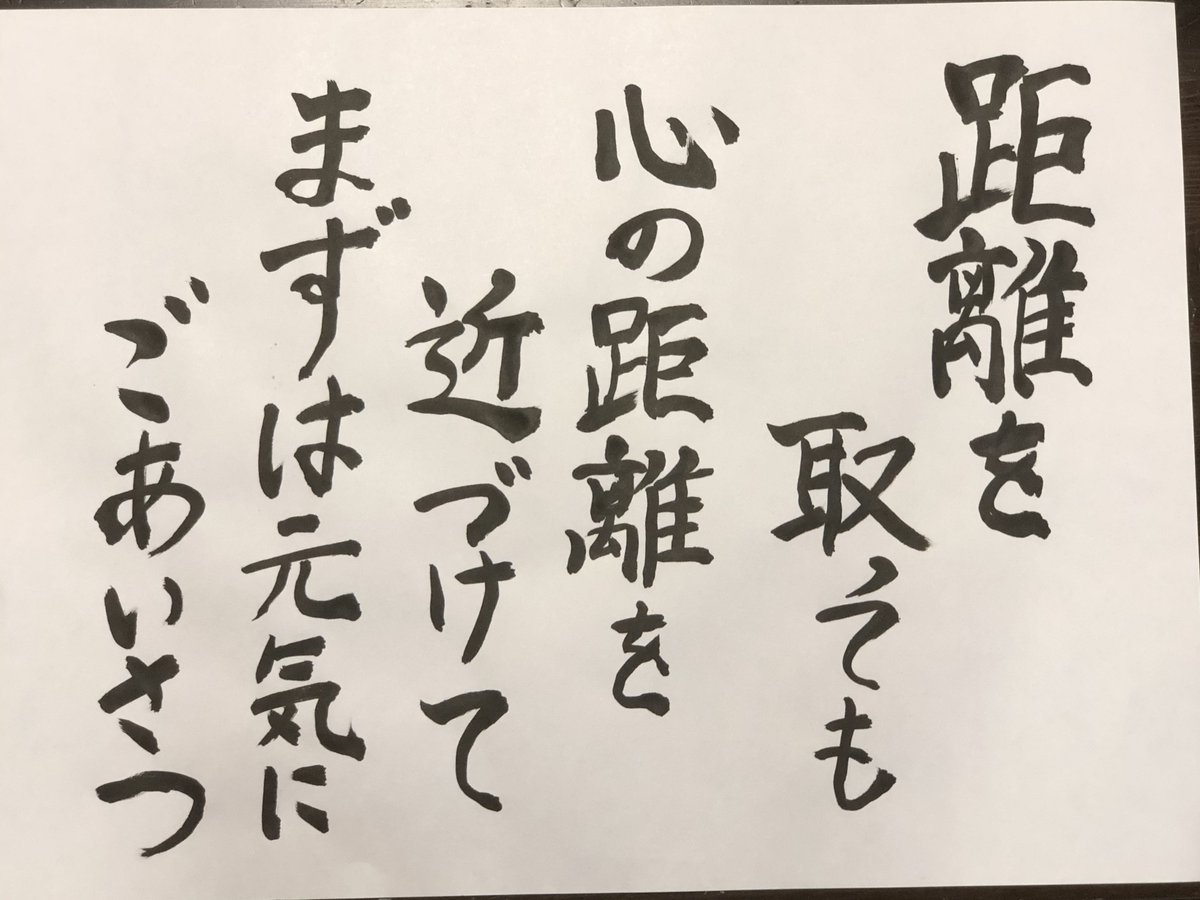 距離を
取っても
心の距離を
近づけて
まずは元気に
ごあいさつ